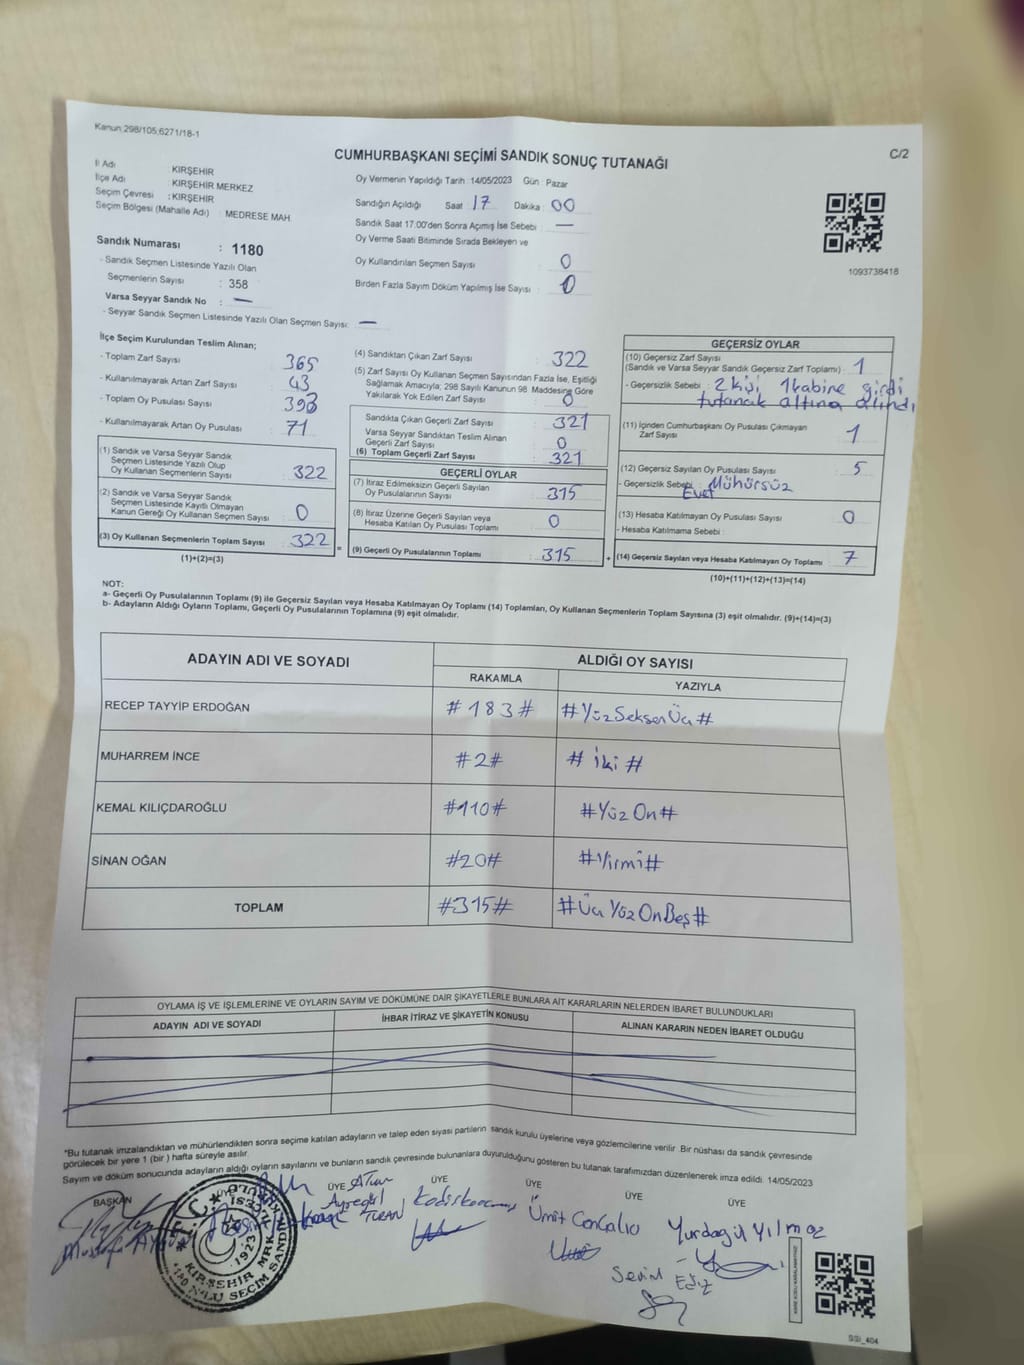 Kanun:298/105;6271/18-1
C/2
CUMHURBAŞKANI SEÇİMİ SANDIK SONUÇ TUTANAĞI
İl Adı : KIRŞEHİR
İlçe Adı : KIRŞEHİR MERKEZ
Seçim Çevresi : KIRŞEHİR
Seçim Bölgesi (Mahalle Adı) : MEDRESE MAH
Oy Vermenin Yapıldığı Tarih : 14/05/2023 Gün : Pazar
Sandığın Açıldığı Saat 17 Dakika : 00
Sandık Saat 17:00'den Sonra Açımış İse Sebebi : —
Oy Verme Saati Bitiminde Sırada Bekleyen ve
Oy Kullandırılan Seçmen Sayısı : 0
Birden Fazla Sayım Döküm Yapılmış İse Sayısı : 0
1093738418
Sandık Numarası : 1180
- Sandık Seçmen Listesinde Yazılı Olan
Seçmenlerin Sayısı : 358
Varsa Seyyar Sandık No : —
- Seyyar Sandık Seçmen Listesinde Yazılı Olan Seçmen Sayısı: —
İlçe Seçim Kurulundan Teslim Alınan;
- Toplam Zarf Sayısı 365
- Kullanılmayarak Artan Zarf Sayısı 43
- Toplam Oy Pusulası Sayısı 393
- Kullanılmayarak Artan Oy Pusulası 71
(1) Sandık ve Varsa Seyyar Sandık
Seçmen Listesinde Yazılı Olup
Oy Kullanan Seçmenlerin Sayısı : 322
(2) Sandık ve Varsa Seyyar Sandık
Seçmen Listesinde Kayıtlı Olmayan
Kanun Gereği Oy Kullanan Seçmen Sayısı : 0
(3) Oy Kullanan Seçmenlerin Toplam Sayısı : 322
(1)+(2)=(3)
=
(4) Sandıktan Çıkan Zarf Sayısı : 322
(5) Zarf Sayısı Oy Kullanan Seçmen Sayısından Fazla İse, Eşitliği
Sağlamak Amacıyla; 298 Sayılı Kanunun 98. Maddesine Göre
Yakılarak Yok Edilen Zarf Sayısı : 0
Sandıkta Çıkan Geçerli Zarf Sayısı : 321
Varsa Seyyar Sandıktan Teslim Alınan
Geçerli Zarf Sayısı : 0
(6) Toplam Geçerli Zarf Sayısı : 321
GEÇERLİ OYLAR
(7) İtiraz Edilmeksizin Geçerli Sayılan
Oy Pusulalarının Sayısı : 315
(8) İtiraz Üzerine Geçerli Sayılan veya
Hesaba Katılan Oy Pusulası Toplamı : 0
(9) Geçerli Oy Pusulalarının Toplamı : 315
+
GEÇERSİZ OYLAR
(10) Geçersiz Zarf Sayısı
(Sandık ve Varsa Seyyar Sandık Geçersiz Zarf Toplamı) : 1
- Geçersizlik Sebebi : 2 kişi 1 kabine girdi
tutanak altına alındı
(11) İçinden Cumhurbaşkanı Oy Pusulası Çıkmayan
Zarf Sayısı : 1
(12) Geçersiz Sayılan Oy Pusulası Sayısı : 5
- Geçersizlik Sebebi : Mühürsüz
Evet
(13) Hesaba Katılmayan Oy Pusulası Sayısı : 0
- Hesaba Katılmama Sebebi :
(14) Geçersiz Sayılan veya Hesaba Katılmayan Oy Toplamı : 7
(10)+(11)+(12)+(13)=(14)
NOT:
a- Geçerli Oy Pusulalarının Toplamı (9) ile Geçersiz Sayılan veya Hesaba Katılmayan Oy Toplamı (14) Toplamları, Oy Kullanan Seçmenlerin Toplam Sayısına (3) eşit olmalıdır. (9)+(14)=(3)
b- Adayların Aldığı Oyların Toplamı, Geçerli Oy Pusulalarının Toplamına (9) eşit olmalıdır.
ADAYIN ADI VE SOYADI
ALDIĞI OY SAYISI
RAKAMLA YAZIYLA
RECEP TAYYİP ERDOĞAN #183# #YüzSeksenÜç#
MUHARREM İNCE #2# #İki#
KEMAL KILIÇDAROĞLU #110# #Yüz On#
SİNAN OĞAN #20# #Yirmi#
TOPLAM #315# #Üç Yüz On Beş#
OYLAMA İŞ VE İŞLEMLERİNE VE OYLARIN SAYIM VE DÖKÜMÜNE DAİR ŞİKAYETLERLE BUNLARA AİT KARARLARIN NELERDEN İBARET BULUNDUKLARI
ADAYIN ADI VE SOYADI İHBAR İTİRAZ VE ŞİKAYETİN KONUSU ALINAN KARARIN NEDEN İBARET OLDUĞU
*Bu tutanak imzalandıktan ve mühürlendikten sonra seçime katılan adayların ve talep eden siyasi partilerin sandık kurulu üyelerine veya gözlemcilerine verilir. Bir nüshası da sandık çevresinde
görülecek bir yere 1 (bir) hafta süreyle asılır.
Sayım ve döküm sonucunda adayların aldığı oyların sayılarını ve bunların sandık çevresinde bulunanlara duyurulduğunu gösteren bu tutanak tarafımızdan düzenlenerek imza edildi. 14/05/2023
BAŞKAN ÜYE ÜYE ÜYE ÜYE ÜYE ÜYE
Mustafa
Ayşegül
TURAN
Ümit
Yurdagül Yılmaz
Sevim Ediz
T.C.
KIRŞEHİR MRK
1180 NOLU SEÇİM SANDIK KURULU
1923
SSI_404